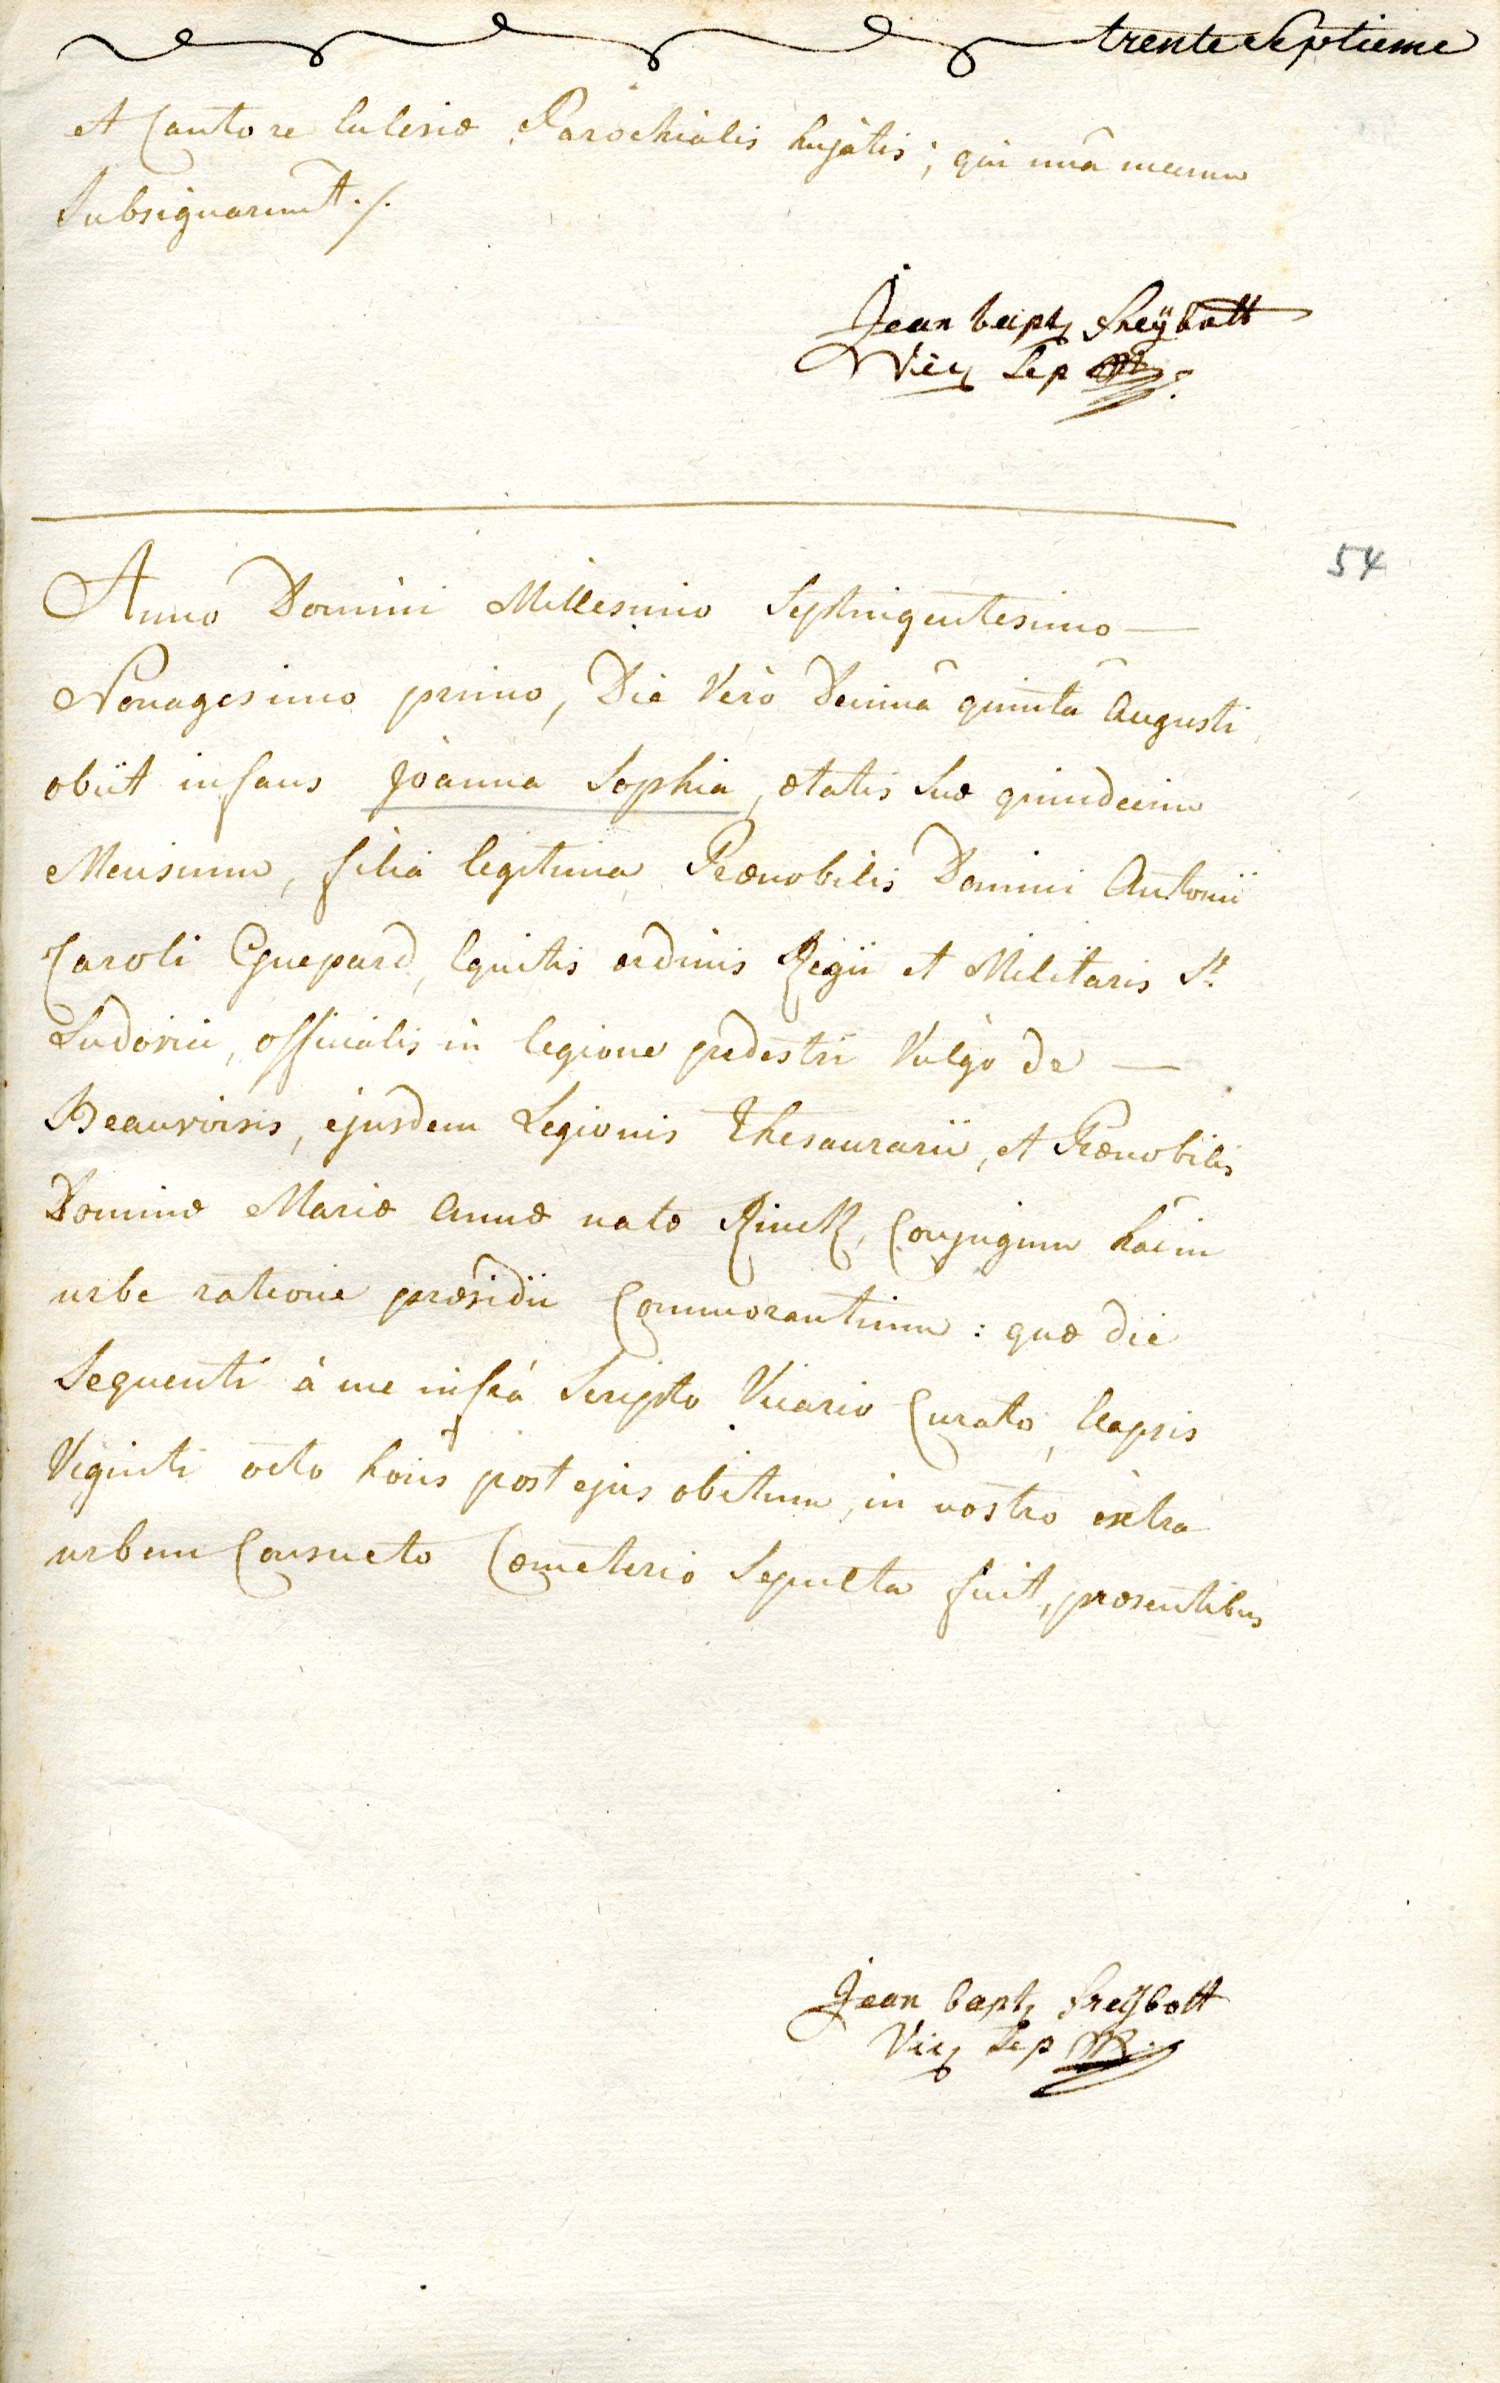 trente Septieme
et Cantore Eclesiæ Parochialis hujatis; qui unà mecum
Subsignarunt ./.
Jean bapt Freÿbott
Vic Sep
54
Anno Domini Millesimo Septingentesimo —
Nonagesimo primo, Die Verò Decimâ quintâ Augusti
obiit infans Joanna Sophia, ætatis suæ quindecim
Mensium, filia legitima Prænobilis Domini Antonii
Caroli Guepard, Equitis ordinis Regii et Militaris St.
Ludovici, officialis in legione pedestri Vulgò de —
Beauvoisis, ejusdem Legionis Thesaurarii, et Prænobilis
Dominæ Mariæ Annæ natæ Rinck, Conjugum hac in
urbe ratione præsidii Commorantium : quæ die
Sequenti à me infrà Scripto Vicario Curato, Elapsis
Viginti octo horis post ejus obitum, in nostro extra
urbem Consueto Cœmeterio Sepulta fuit, præsentibus
Jean bapt Freÿbott
Vic Sep